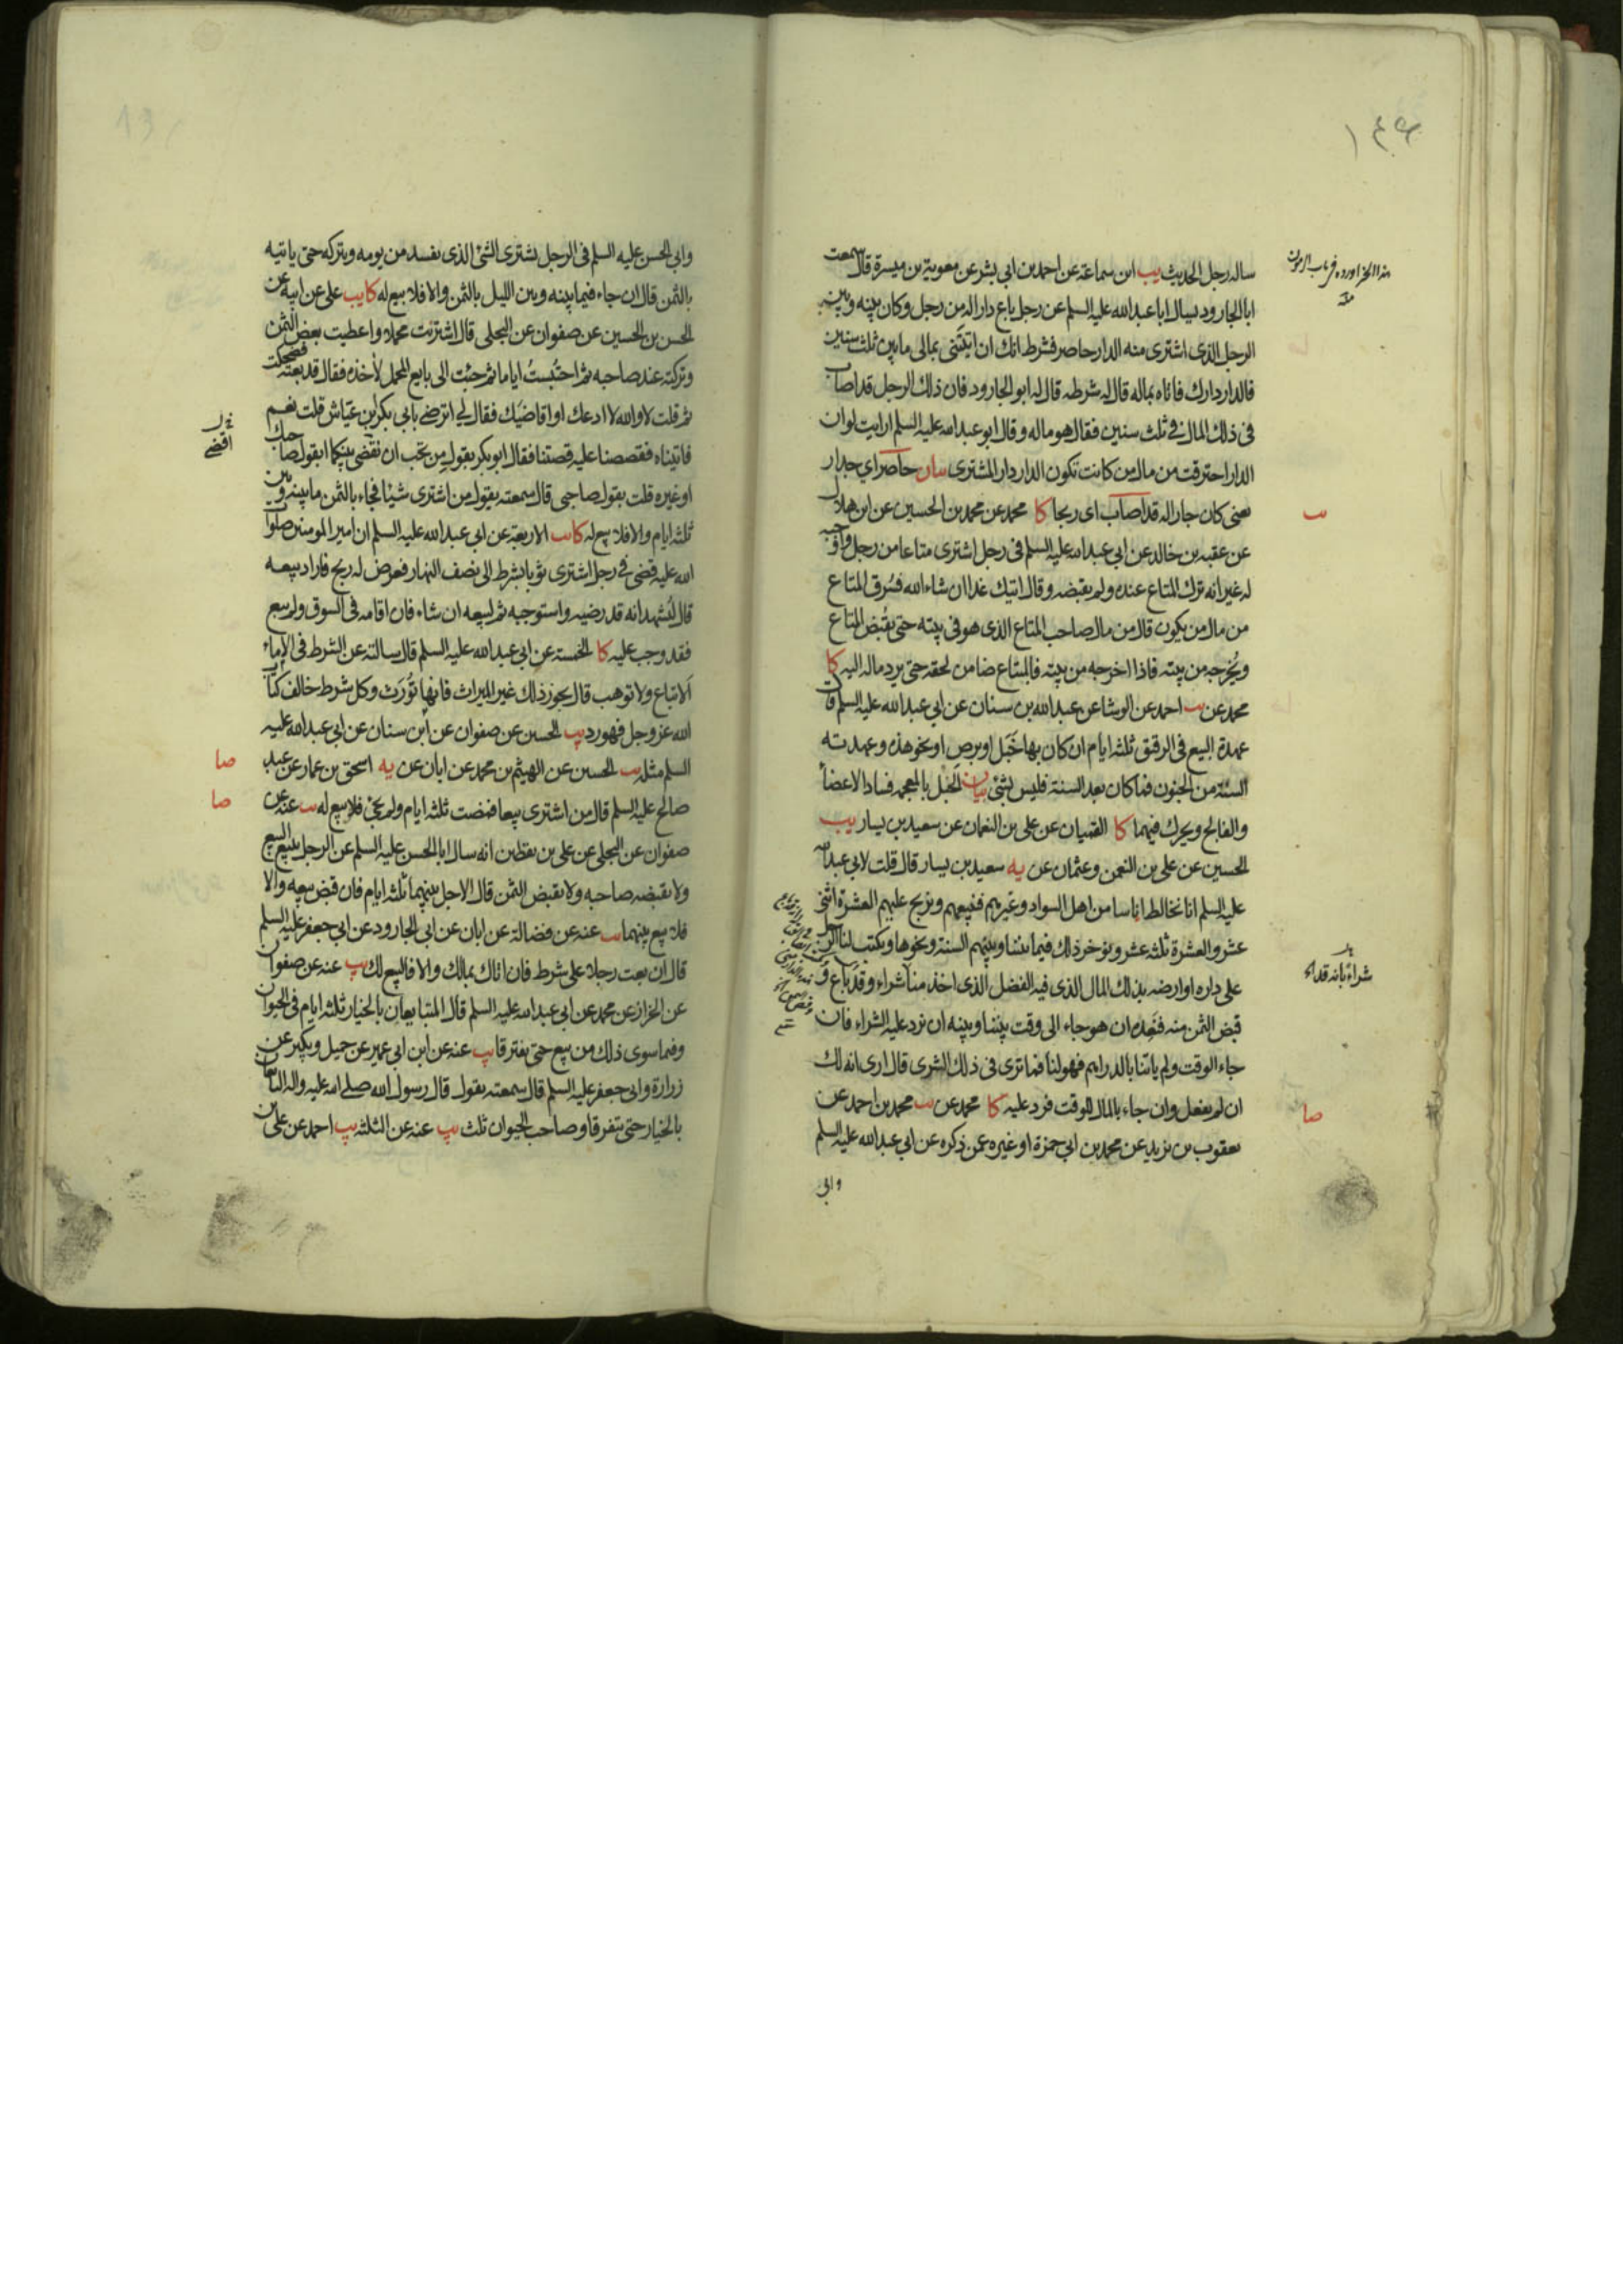 ساله رجل الحديث يب ابن سماعة عن احمد بن ابي بشر عن معوية بن ميسرة قال سمعت
ابا الجارود يسال ابا عبد الله عليه السلم عن رجل باع دارا له من رجل وكان بينه وبين
الرجل الذى اشترى منه الدار حاصر فشرط انك ان اتيتنى بمالى ما بين ثلث سنين
فالدار دارك فاتاه بماله قال له شرطه قال له ابو الجارود فان ذلك الرجل قد اصاب
فى ذلك المال فى ثلث سنين فقال هو ماله وقال ابو عبد الله عليه السلم ارايت لو ان
الدار احترقت من مال من كانت تكون الدار دار المشترى بيان حاصر اي جدار
يعنى كان جارا له قد اصاب اى ربحا كا محمد عن محمد بن الحسين عن ابن هلال
عن عقبه بن خالد عن ابي عبد الله عليه السلم فى رجل اشترى متاعا من رجل واوجبه
له غير انه ترك المتاع عنده ولم يقبضه وقال اتيك غدا ان شاء الله فسُرق المتاع
من مال من يكون قال من مال صاحب المتاع الذى هو فى بيته حتى يقبض المتاع
ويُخرجه من بيته فاذا اخرجه من بيته فالمبتاع ضامن لحقه حتى يرد ماله اليه كا
محمد عن يب احمد عن الوشا عن عبد الله بن سنان عن ابي عبد الله عليه السلم قال
عهدة البيع فى الرقيق ثلثه ايام ان كان بها خَبَل او برص او نحو هذه وعهدته
السنة من الجنون فما كان بعد السنة فليس بشئ بيان الخبل بالمعجمه فساد الاعضاء
والفالج ويحرك فيهما كا القميان عن على بن النعمان عن سعيد بن يسار يب
الحسين عن على بن النعمن وعثمان عن يه سعيد بن يسار قال قلت لابي عبد الله
عليه السلم انا نخالط اناسا من اهل السواد وغيرهم فنبيعهم ونربح عليهم العشرة اثنى
عشر والعشرة ثلثه عشر ونوخر ذلك فيما بيننا وبينهم السنة ونحوها ويكتب لنا الرجل
على داره او ارضه بذلك المال الذى فيه الفضل الذى اخذ منا شراء وقد باع و
قبض الثمن منه فنَعِده ان هو جاء الى وقت بيننا وبينه ان نرد عليه الشراء فان
جاء الوقت ولم ياتنا بالدراهم فهو لنا فما ترى فى ذلك الشرى قال ارى انه لك
ان لم يفعل وان جاء بالمال للوقت فرد عليه كا محمد عن يب محمد بن احمد عن
يعقوب بن يزيد عن محمد بن ابي حمزة او غيره عمن ذكره عن ابي عبد الله عليه السلم
وابى
شراءً بانه قد
صا
وابي الحسن عليه السلم فى الرجل يشترى الشئ الذى يفسد من يومه ويتركه حتى ياتيه
بالثمن قال ان جاء فيما بينه وبين الليل بالثمن والا فلا بيع له كا يب على عن ابيه عن
الحسن بن الحسين عن صفوان عن البجلى قال اشتريت محملا واعطيت بعض الثمن
وتركته عند صاحبه ثم احتُبستُ اياما ثم جئت الى بايع المحمل لاٰخذه فقال قد بعته فضحكت
ثم قلت لا والله لا ادعك او اقاضيَك فقال لي اترضى بابي بكر بن عيّاش قلت نعم
فاتيناه فقصصنا عليه قصتنا فقال ابو بكر بقول من تحب ان نقضى بينكما ابقول صاحبك
او غيره قلت بقول صاحبى قال سمعته يقول من اشترى شيئا فجاء بالثمن ما بينه وبين
ثلثه ايام والا فلا بيع له كا يب الاربعة عن ابي عبد الله عليه السلم ان امير المومنين صلوات
الله عليه قضى فى رجل اشترى ثوبا بشرط الى نصف النهار فعرض له ربح فاراد بيعه
قال ليُشهد انه قد رضيه واستوجبه ثم ليبعه ان شاء فان اقامه فى السوق ولم يبع
فقد وجب عليه كا الخمسة عن ابى عبد الله عليه السلم قال سالته عن الشرط فى الاماء
الا تباع ولا توهب قال يجوز ذلك غير الميراث فانها تُورَث وكل شرط خالف كتاب
الله عز وجل فهو رد يب الحسين عن صفوان عن ابن سنان عن ابي عبد الله عليه
السلم مثله يب الحسين عن الهيثم بن محمد عن ابان عن يه اسحق بن عمار عن عبد
صالح عليه السلم قال من اشترى بيعا فمضت ثلثه ايام ولم يجئ فلا بيع له يب عنه عن
صفوان عن البجلى عن على بن يقطين انه سال ابا الحسن عليه السلم عن الرجل يبيع البيع
ولا يقبضه صاحبه ولا يقبض الثمن قال الاجل بينهما ثلثه ايام فان قبض بيعه والا
فلا بيع بينهما يب عنه عن فضالة عن ابان عن ابى الجارود عن ابي جعفر عليه السلم
قال ان بعت رجلا على شرط فان اتاك بمالك والا فالبيع لك يب عنه عن صفوان
عن الخزاز عن محمد عن ابى عبد الله عليه السلم قال المتبايعان بالخيار ثلثه ايام فى الحيوان
وفيما سوى ذلك من بيع حتى يفترقا يب عنه عن ابن ابى عمير عن جميل وبكير عن
زرارة وابى جعفر عليه السلم قال سمعته يقول قال رسول الله صلى الله عليه واله البايعان
بالخيار حتى يتفرقا وصاحب الحيوان ثلث يب عنه عن الثلثه يب احمد عن على بن
اقضى
صا
صا